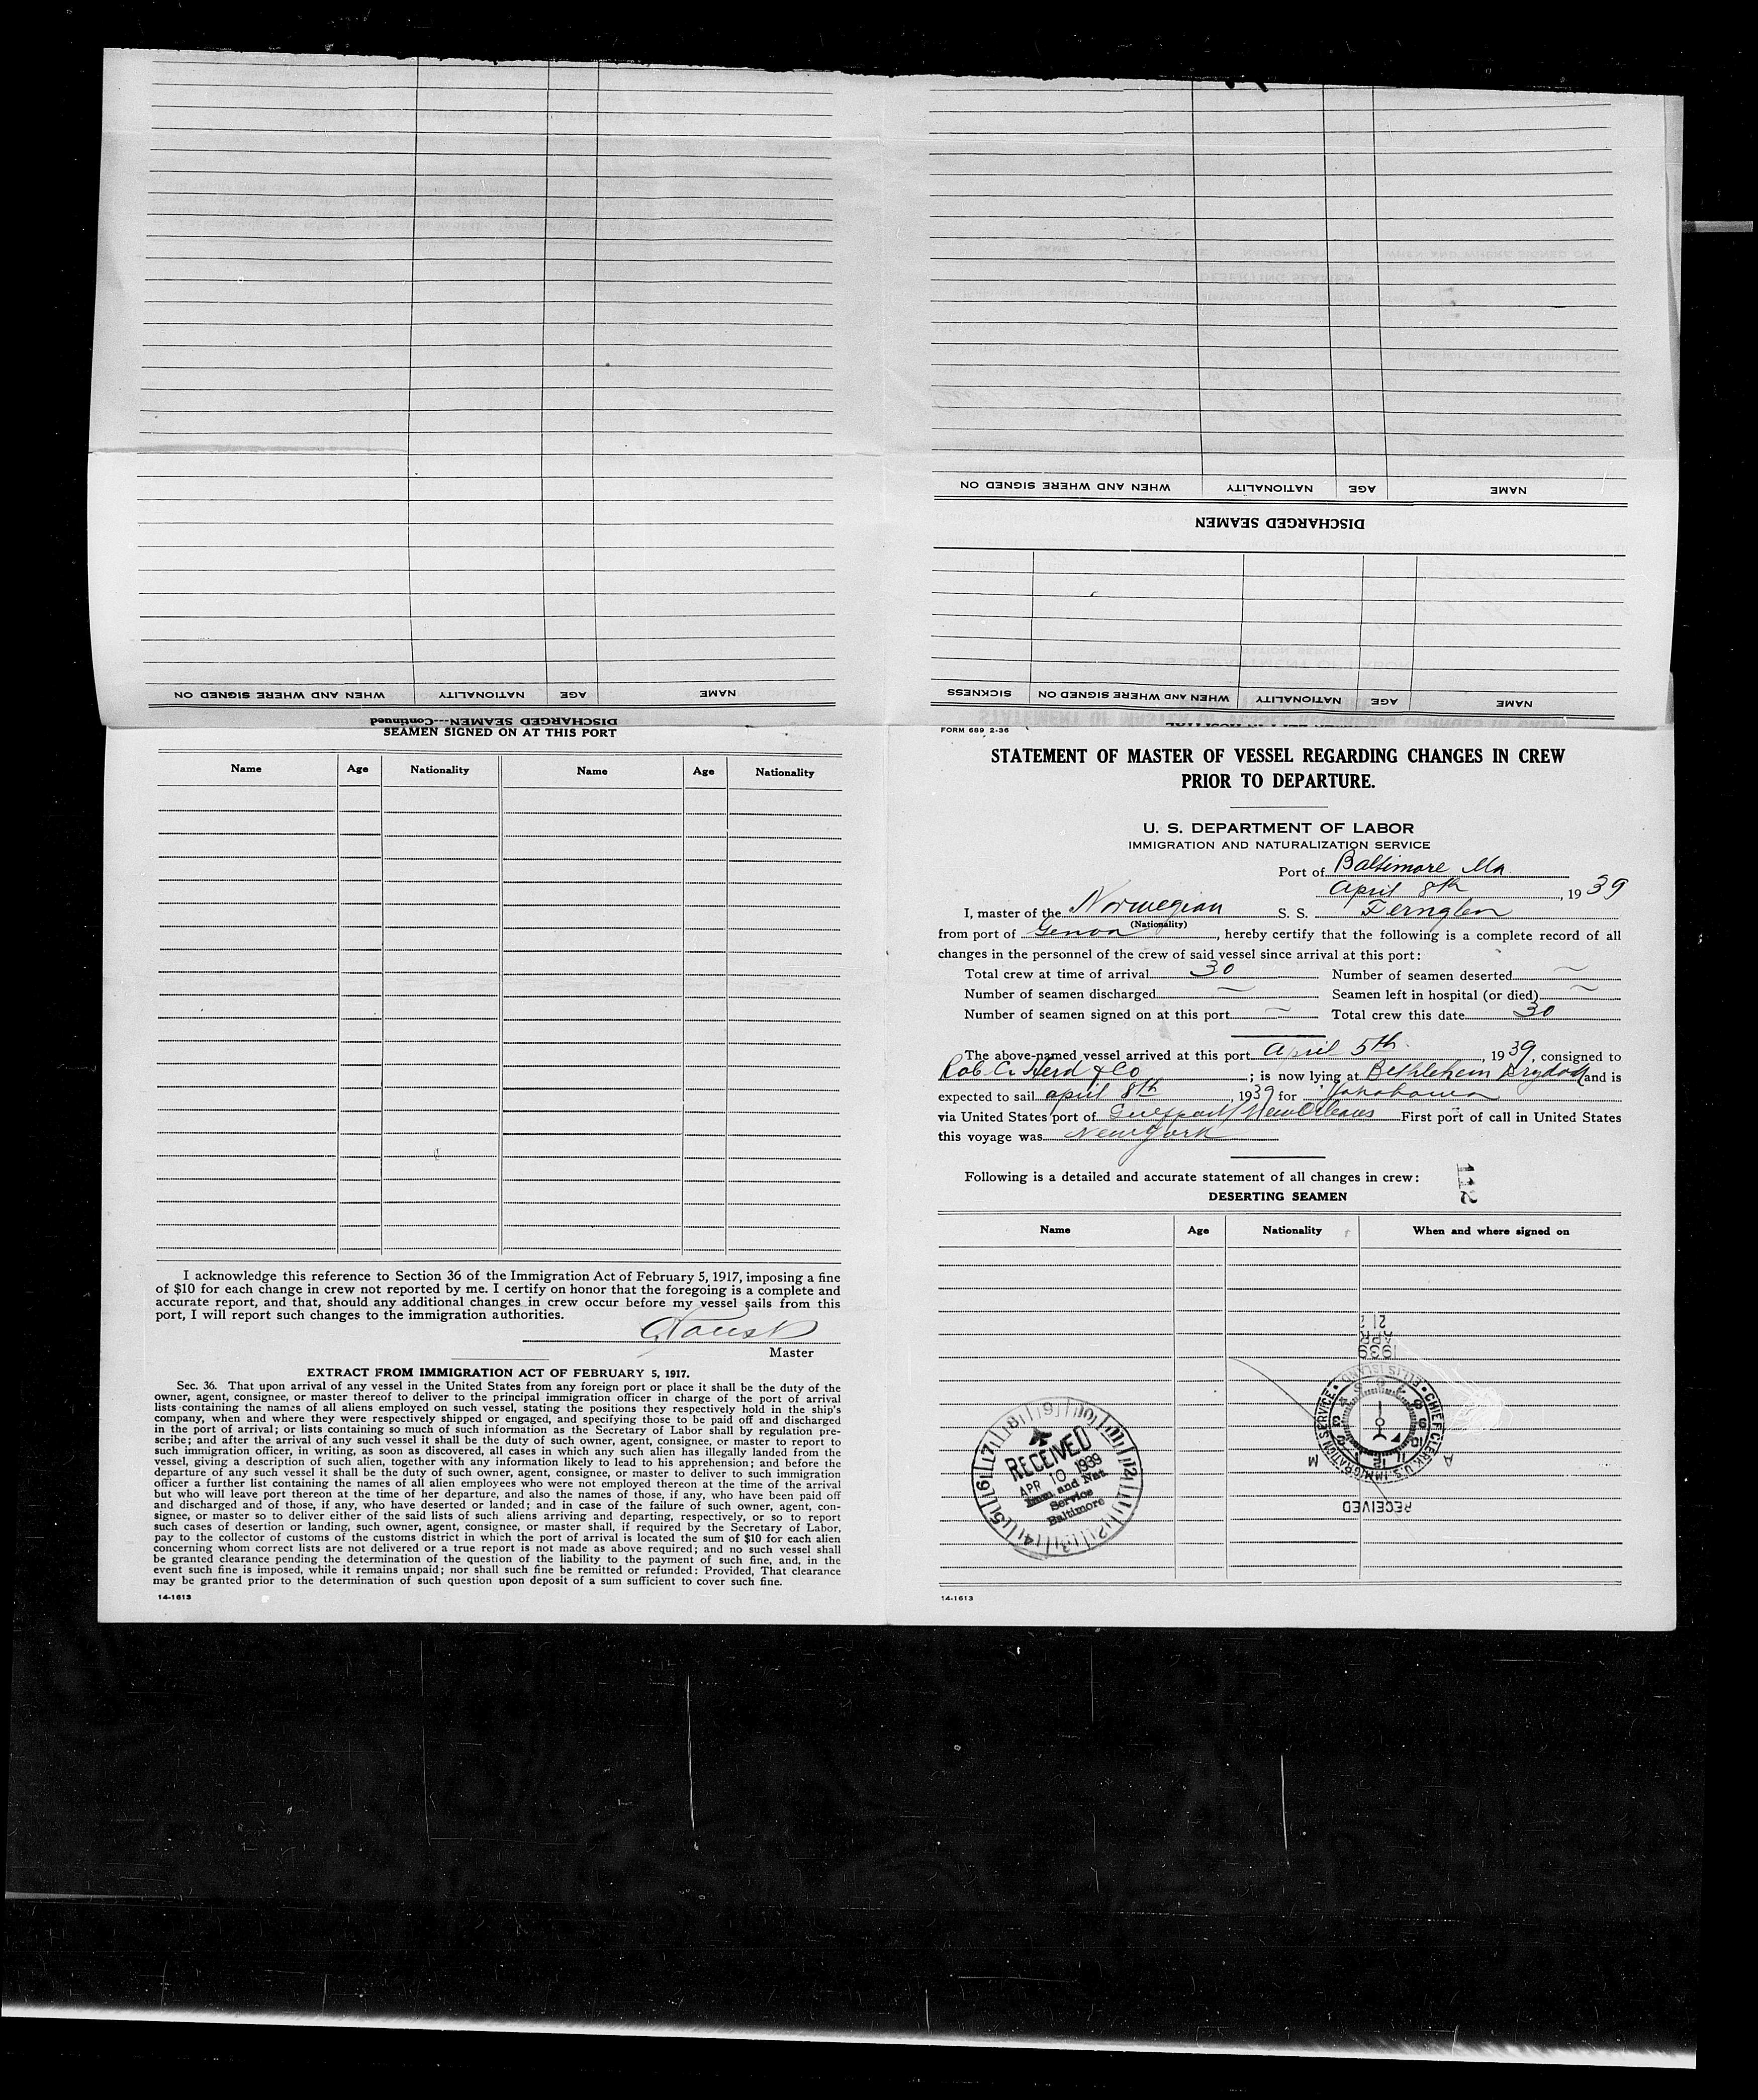 WHEN AND WHERE SIGNED ON NATIONALITY AGE NAME
DISCHARGED SEAMEN
SICKNESS WHEN AND WHERE SIGNED ON NATIONALITY AGE NAME
WHEN AND WHERE SIGNED ON NATIONALITY AGE NAME
DISCHARGED SEAMEN---Continued
SEAMEN SIGNED ON AT THIS PORT
Name Age Nationality Name Age Nationality
I acknowledge this reference to Section 36 of the Immigration Act of February 5, 1917, imposing a fine
of $10 for each change in crew not reported by me. I certify on honor that the foregoing is a complete and
accurate report, and that, should any additional changes in crew occur before my vessel sails from this
port, I will report such changes to the immigration authorities.
Master
EXTRACT FROM IMMIGRATION ACT OF FEBRUARY 5, 1917.
Sec. 36. That upon arrival of any vessel in the United States from any foreign port or place it shall be the duty of the
owner, agent, consignee, or master thereof to deliver to the principal immigration officer in charge of the port of arrival
lists containing the names of all aliens employed on such vessel, stating the positions they respectively hold in the ship's
company, when and where they were respectively shipped or engaged, and specifying those to be paid off and discharged
in the port of arrival; or lists containing so much of such information as the Secretary of Labor shall by regulation pre-
scribe; and after the arrival of any such vessel it shall be the duty of such owner, agent, consignee, or master to report to
such immigration officer, in writing, as soon as discovered, all cases in which any such alien has illegally landed from the
vessel, giving a description of such alien, together with any information likely to lead to his apprehension; and before the
departure of any such vessel it shall be the duty of such owner, agent, consignee, or master to deliver to such immigration
officer a further list containing the names of all alien employees who were not employed thereon at the time of the arrival
but who will leave port thereon at the time of her departure, and also the names of those, if any, who have been paid off
and discharged and of those, if any, who have deserted or landed; and in case of the failure of such owner, agent, con-
signee, or master so to deliver either of the said lists of such aliens arriving and departing, respectively, or so to report
such cases of desertion or landing, such owner, agent, consignee, or master shall, if required by the Secretary of Labor,
pay to the collector of customs of the customs district in which the port of arrival is located the sum of $10 for each alien
concerning whom correct lists are not delivered or a true report is not made as above required; and no such vessel shall
be granted clearance pending the determination of the question of the liability to the payment of such fine, and, in the
event such fine is imposed, while it remains unpaid; nor shall such fine be remitted or refunded: Provided, That clearance
may be granted prior to the determination of such question upon deposit of a sum sufficient to cover such fine.
14-1613
FORM 689 2-36
STATEMENT OF MASTER OF VESSEL REGARDING CHANGES IN CREW
PRIOR TO DEPARTURE.
U. S. DEPARTMENT OF LABOR
IMMIGRATION AND NATURALIZATION SERVICE
Port of Baltimore Md.
April 8th, 1939
I, master of the Norwegian S. S. Fernglen
(Nationality)
from port of Genoa, hereby certify that the following is a complete record of all
changes in the personnel of the crew of said vessel since arrival at this port:
Total crew at time of arrival 30 Number of seamen deserted ~
Number of seamen discharged ~ Seamen left in hospital (or died) ~
Number of seamen signed on at this port ~ Total crew this date 30
The above-named vessel arrived at this port April 5th, 1939, consigned to
Rob. C. Herd & Co; is now lying at Bethlehem Drydock and is
expected to sail april 8th, 1939 for Yokohama
via United States port of Gulfport/New Orleans First port of call in United States
this voyage was New York
Following is a detailed and accurate statement of all changes in crew:
112
DESERTING SEAMEN
Name Age Nationality When and where signed on
RECEIVED
APR 10 1939
Imm and Nat.
Service
Baltimore
RECEIVED
CHIEF CLERK U.S. IMMIGRATION SERVICE
ELLIS ISLAND
A M
1939
APR
14-1613